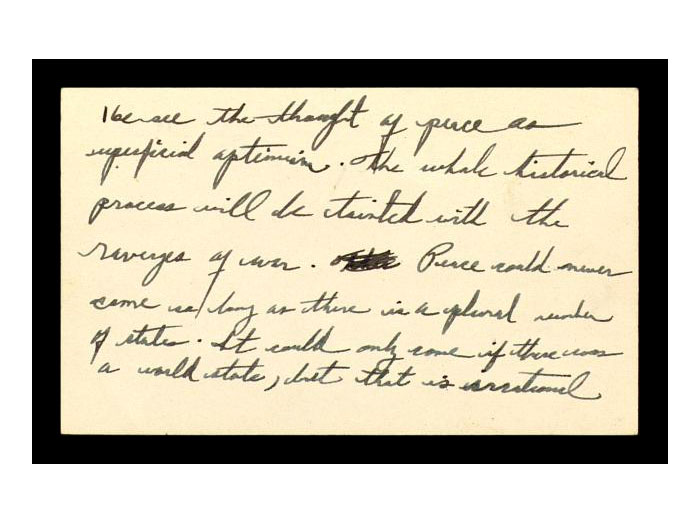 He see the thought of peace as
superficial optimism. The whole historical
process will be tainted with the
ravages of war. Peace could never
come as long as there is a plural number
of states. It could only come if there was
a world state, but that is irrational